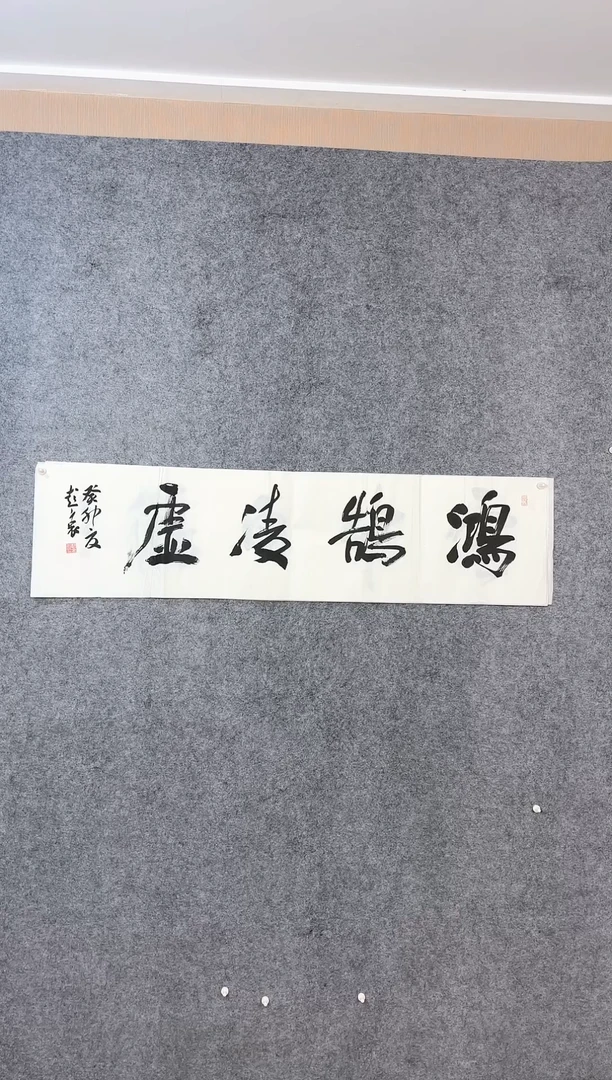 鴻鵠凌虚
癸卯夏